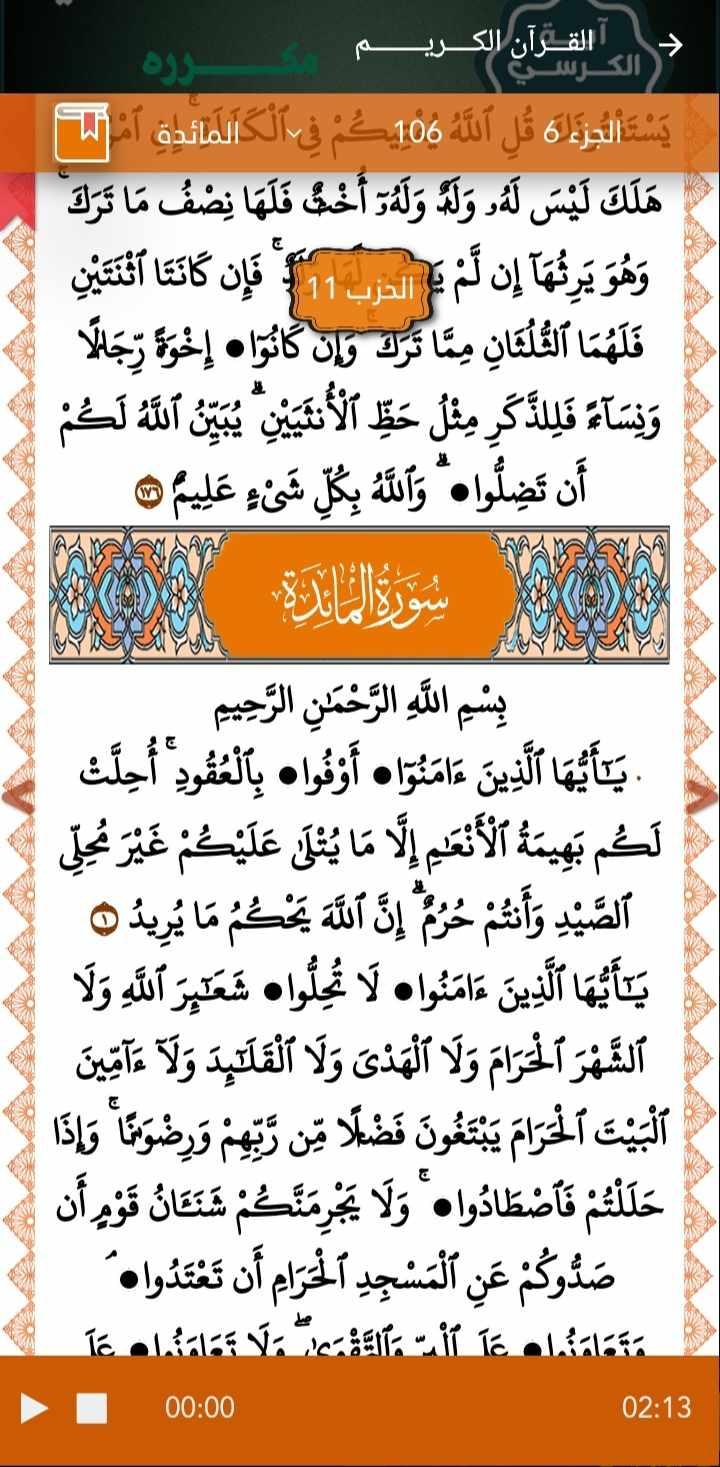 القــرآن الكـــريـــــم
آيـة
الكـرسـي
مكـــــــــرره
الجزء 6
106
المائدة
يَسْتَفْتُونَكَ قُلِ ٱللَّهُ يُفْتِيكُمْ فِي ٱلْكَلَٰلَةِۚ إِنِ ٱمْرُ
هَلَكَ لَيْسَ لَهُۥ وَلَدٌ وَلَهُۥٓ أُخْتٌ فَلَهَا نِصْفُ مَا تَرَكَۚ
وَهُوَ يَرِثُهَآ إِن لَّمْ يَكُن لَّهَا وَلَدٌۚ فَإِن كَانَتَا ٱثْنَتَيْنِ
الحزب 11
فَلَهُمَا ٱلثُّلُثَانِ مِمَّا تَرَكَۚ وَإِن كَانُوٓا● إِخْوَةً رِّجَالًا
وَنِسَآءً فَلِلذَّكَرِ مِثْلُ حَظِّ ٱلْأُنثَيَيْنِۗ يُبَيِّنُ ٱللَّهُ لَكُمْ
أَن تَضِلُّوا●ۗ وَٱللَّهُ بِكُلِّ شَىْءٍ عَلِيمٌ ١٧٦
سُورَةُ المَائِدَة
بِسْمِ اللَّهِ الرَّحْمَٰنِ الرَّحِيمِ
يَٰٓأَيُّهَا ٱلَّذِينَ ءَامَنُوٓا● أَوْفُوا● بِٱلْعُقُودِۚ أُحِلَّتْ
لَكُم بَهِيمَةُ ٱلْأَنْعَٰمِ إِلَّا مَا يُتْلَىٰ عَلَيْكُمْ غَيْرَ مُحِلِّى
ٱلصَّيْدِ وَأَنتُمْ حُرُمٌۗ إِنَّ ٱللَّهَ يَحْكُمُ مَا يُرِيدُ ١
يَٰٓأَيُّهَا ٱلَّذِينَ ءَامَنُوا● لَا تُحِلُّوا● شَعَٰٓئِرَ ٱللَّهِ وَلَا
ٱلشَّهْرَ ٱلْحَرَامَ وَلَا ٱلْهَدْىَ وَلَا ٱلْقَلَٰٓئِدَ وَلَآ ءَآمِّينَ
ٱلْبَيْتَ ٱلْحَرَامَ يَبْتَغُونَ فَضْلًا مِّن رَّبِّهِمْ وَرِضْوَٰنًاۚ وَإِذَا
حَلَلْتُمْ فَٱصْطَادُوا●ۚ وَلَا يَجْرِمَنَّكُمْ شَنَـَٔانُ قَوْمٍ أَن
صَدُّوكُمْ عَنِ ٱلْمَسْجِدِ ٱلْحَرَامِ أَن تَعْتَدُوا●ۘ
وَتَعَاوَنُوا● عَلَى ٱلْبِرِّ وَٱلتَّقْوَىٰۖ وَلَا تَعَاوَنُوا● عَلَى
00:00
02:13